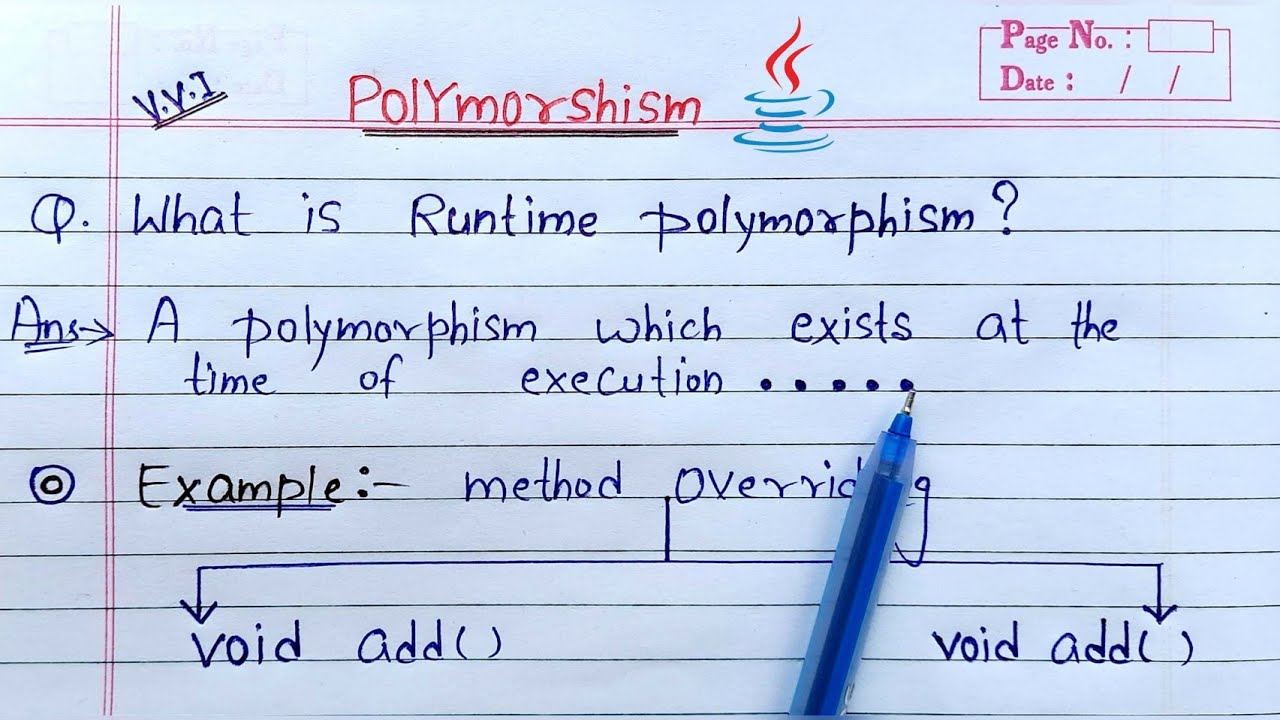 Page No. :
Date : / /
V.V.I
PolYmorshism
Q. What is Runtime polymorphism?
Ans→ A polymorphism which exists at the
time of execution •••••
Example:- method
void add() void add()